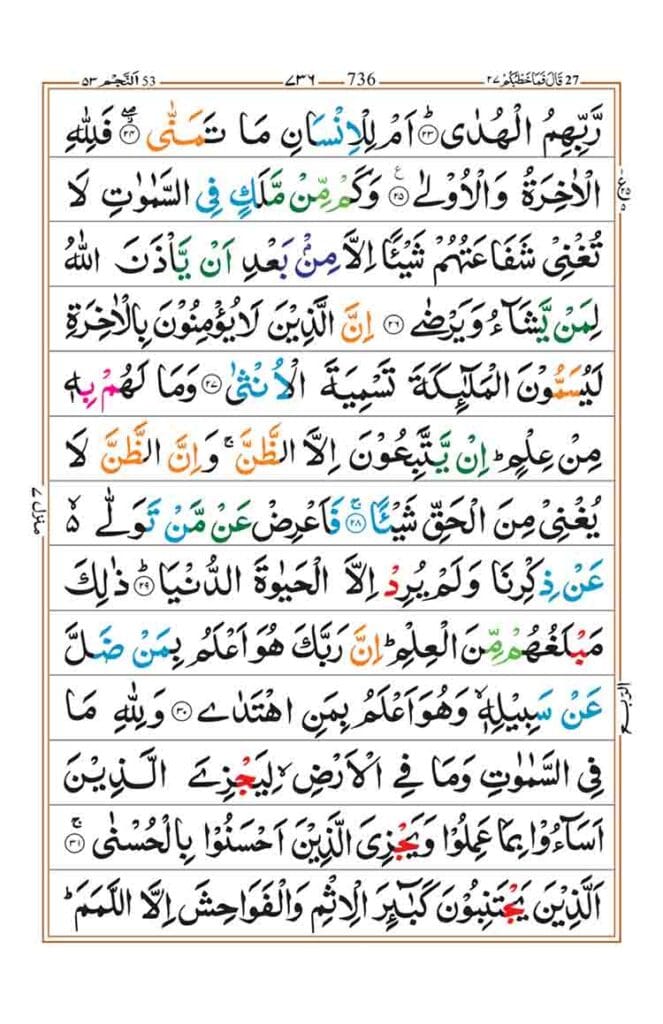 27 قَالَ فَمَا خَطْبُكُمْ ٢٧ 736 ٧٣٦ 53 اَلنَّجْم ٥٣
رَّبِّهِمُ الْهُدٰىؕ ﴿۲۳﴾ اَمْ لِلْاِنْسَانِ مَا تَمَنّٰىۖ ﴿۲۴﴾ فَلِلّٰهِ
الْاٰخِرَةُ وَالْاُوْلٰى ﴿۲۵﴾ ع وَكَمْ مِّنْ مَّلَكٍ فِى السَّمٰوٰتِ لَا
تُغْنِىْ شَفَاعَتُهُمْ شَيْـًٔا اِلَّا مِنْۢ بَعْدِ اَنْ يَّاْذَنَ اللّٰهُ
لِمَنْ يَّشَآءُ وَيَرْضٰى ﴿۲۶﴾ اِنَّ الَّذِيْنَ لَا يُؤْمِنُوْنَ بِالْاٰخِرَةِ
لَيُسَمُّوْنَ الْمَلٰٓئِكَةَ تَسْمِيَةَ الْاُنْثٰى ﴿۲۷﴾ وَمَا لَهُمْ بِهٖ
مِنْ عِلْمٍؕ اِنْ يَّتَّبِعُوْنَ اِلَّا الظَّنَّۚ وَاِنَّ الظَّنَّ لَا
يُغْنِىْ مِنَ الْحَقِّ شَيْـًٔاۚ ﴿۲۸﴾ فَاَعْرِضْ عَنْ مَّنْ تَوَلّٰى ۙ
عَنْ ذِكْرِنَا وَلَمْ يُرِدْ اِلَّا الْحَيٰوةَ الدُّنْيَاؕ ﴿۲۹﴾ ذٰلِكَ
مَبْلَغُهُمْ مِّنَ الْعِلْمِؕ اِنَّ رَبَّكَ هُوَ اَعْلَمُ بِمَنْ ضَلَّ
عَنْ سَبِيْلِهٖۙ وَهُوَ اَعْلَمُ بِمَنِ اهْتَدٰى ﴿۳۰﴾ وَلِلّٰهِ مَا
فِى السَّمٰوٰتِ وَمَا فِى الْاَرْضِۙ لِيَجْزِىَ الَّذِيْنَ
اَسَآءُوْا بِمَا عَمِلُوْا وَيَجْزِىَ الَّذِيْنَ اَحْسَنُوْا بِالْحُسْنٰىۚ ﴿۳۱﴾
اَلَّذِيْنَ يَجْتَنِبُوْنَ كَبٰٓئِرَ الْاِثْمِ وَالْفَوَاحِشَ اِلَّا اللَّمَمَؕ
منزل ٧
الربع